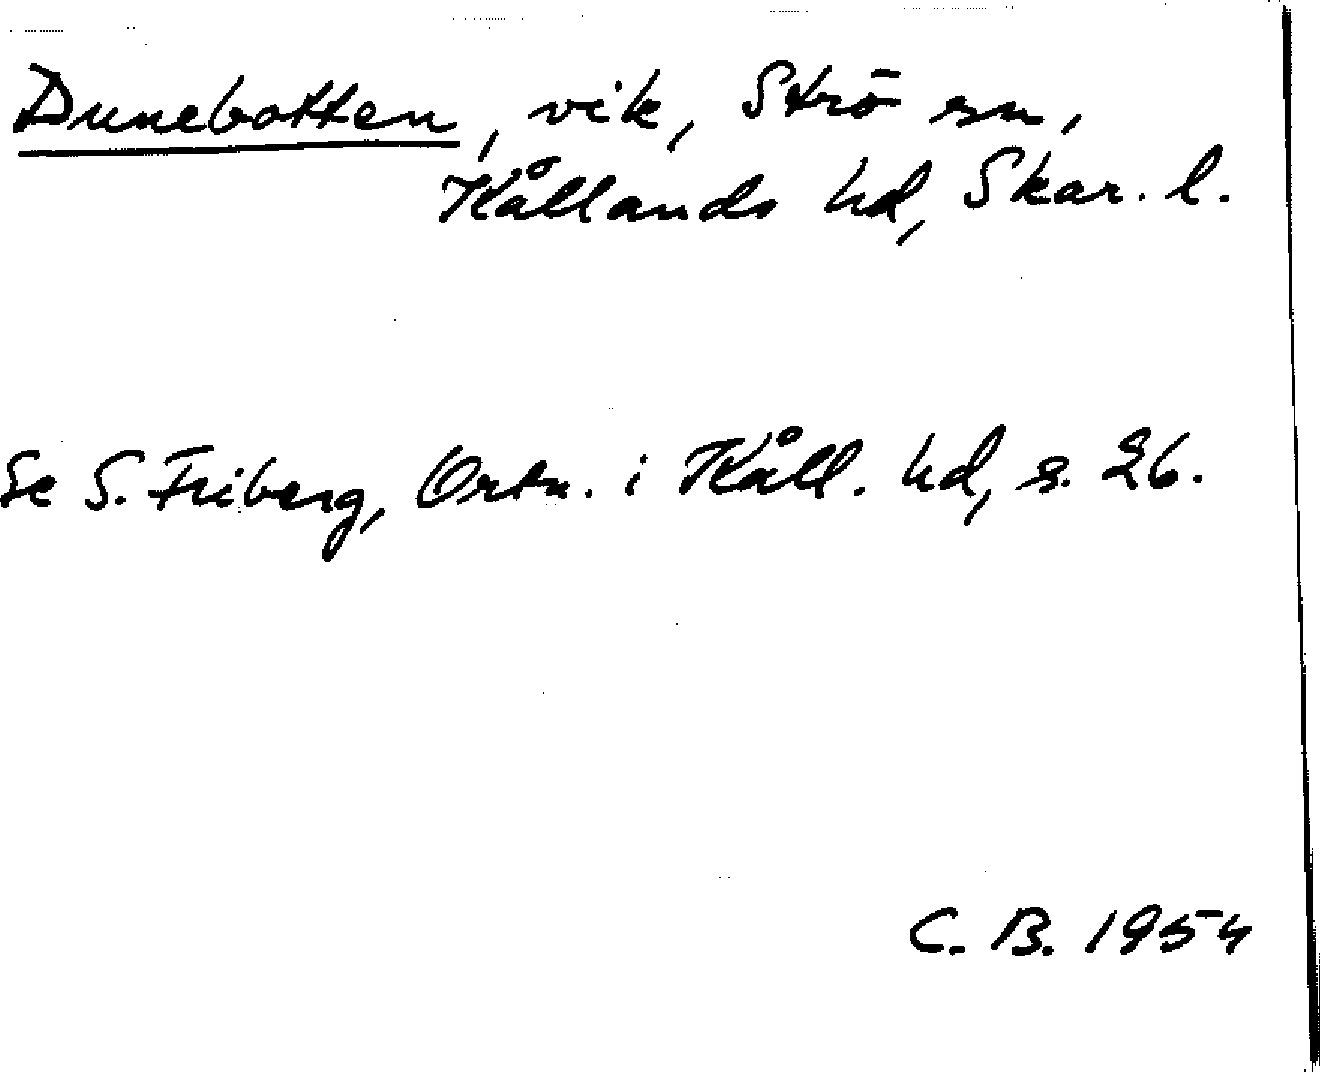 Dunebotten, vik, Strö sn,
Kållands hd, Skar. l.
Se S. Friberg, Ortn. i Kåll. hd, s. 26.
C. B. 1954